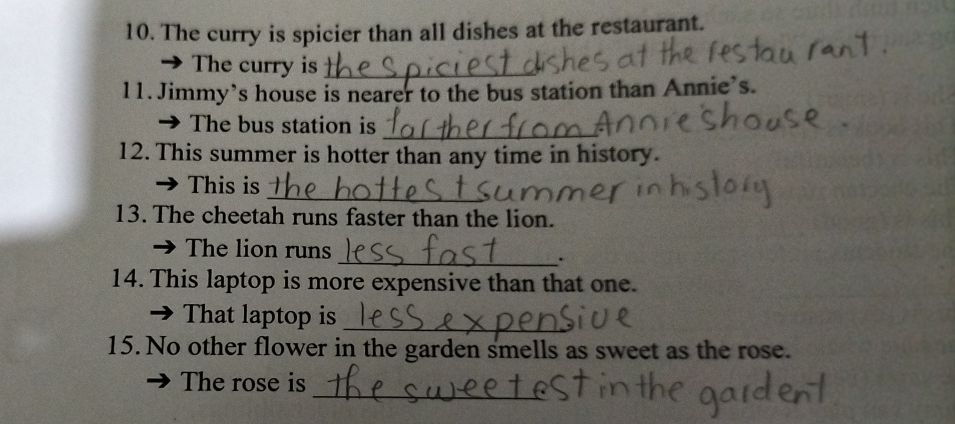 10. The curry is spicier than all dishes at the restaurant.
→ The curry is the spiciest dishes at the restaurant.
11. Jimmy's house is nearer to the bus station than Annie's.
→ The bus station is farther from Annie's house.
12. This summer is hotter than any time in history.
→ This is the hottest summer in history
13. The cheetah runs faster than the lion.
→ The lion runs less fast.
14. This laptop is more expensive than that one.
→ That laptop is less expensive
15. No other flower in the garden smells as sweet as the rose.
→ The rose is the sweetest in the gardent